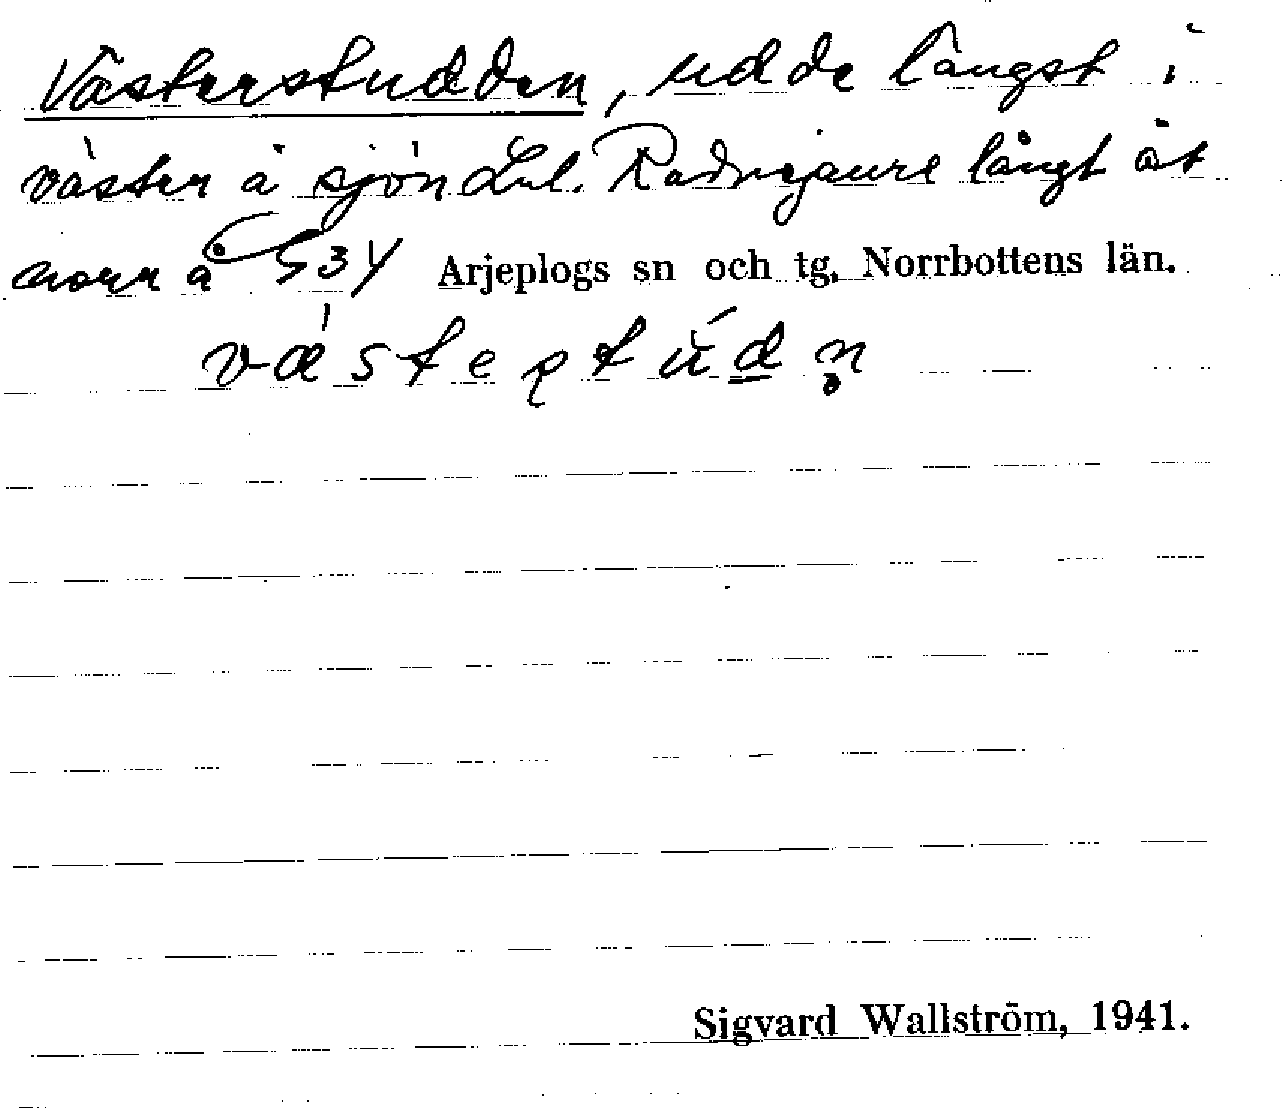 Västerstudden, udde längst i
väster å sjön Lul. Radnejaure långt åt
norr å 534 Arjeplogs sn och tg, Norrbottens län.
Sigvard Wallström, 1941.